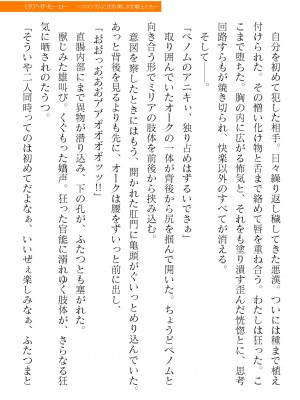 自分を初めて犯した相手、日々繰り返し穢してきた悪漢。ついには種まで植え
付けられた。その憎い化け物と舌まで絡めて唇を重ね合う。わたしは狂った。こ
こまで堕ちた。胸の内に広がる怖気と、それをも塗り潰す歪んだ恍惚とに、思考
回路すらもが焼き切られ、快楽以外のすべてが消える。
そして――。
「ベノムのアニキぃ、独り占めはずるいでさぁ」
取り囲んでいたオークの一体が背後から尻を掴んで開いた。ちょうどベノムと
向き合う形でミリアの肢体を前後から挟み込む。
意図を察したときにはもう、開かれた肛門に亀頭がぐいっとめり込んでいた。
あっと背後を見るよりも先に、オークは腰をずいっと前に出し、
「おおっああああアアオオオオッッ!!」
直腸内部にまで異物が滑り込み、下の孔が、ふたつとも塞がれた。
獣じみた雄叫び。くぐもった嬌声。狂った官能に溺れゆく肢体が、さらなる狂
気に晒されたのうつ。
「そういや二人同時ってのは初めてだよなぁ、いいぜぇ楽しみなぁ、ふたつまと